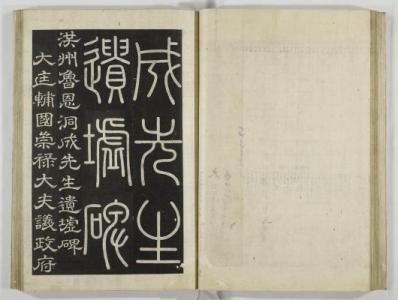 成先生
遺墟碑
洪州魯恩洞成先生遺墟碑
大匡輔國崇祿大夫議政府